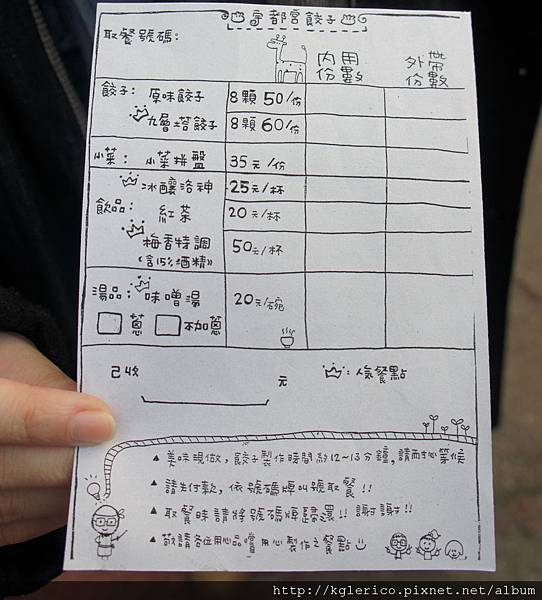 宇都宮餃子
取餐號碼：
內用份數
外帶份數
餃子： 原味餃子 8顆 50/份
九層塔餃子 8顆 60/份
小菜： 小菜拼盤 35元/份
冰釀洛神 25元/杯
飲品： 紅茶 20元/杯
梅香特調 50元/杯
(含15%酒精)
湯品： 味噌湯 20元/碗
蔥 不加蔥
已收 元 ：人氣餐點
美味現做，餃子製作時間約12~13分鐘，請耐心等候
請先付款，依號碼牌叫號取餐!!
取餐時請將號碼牌歸還!! 謝謝!!
敬請各位用心品嚐 用心製作之餐點
http://kglerico.pixnet.net/album